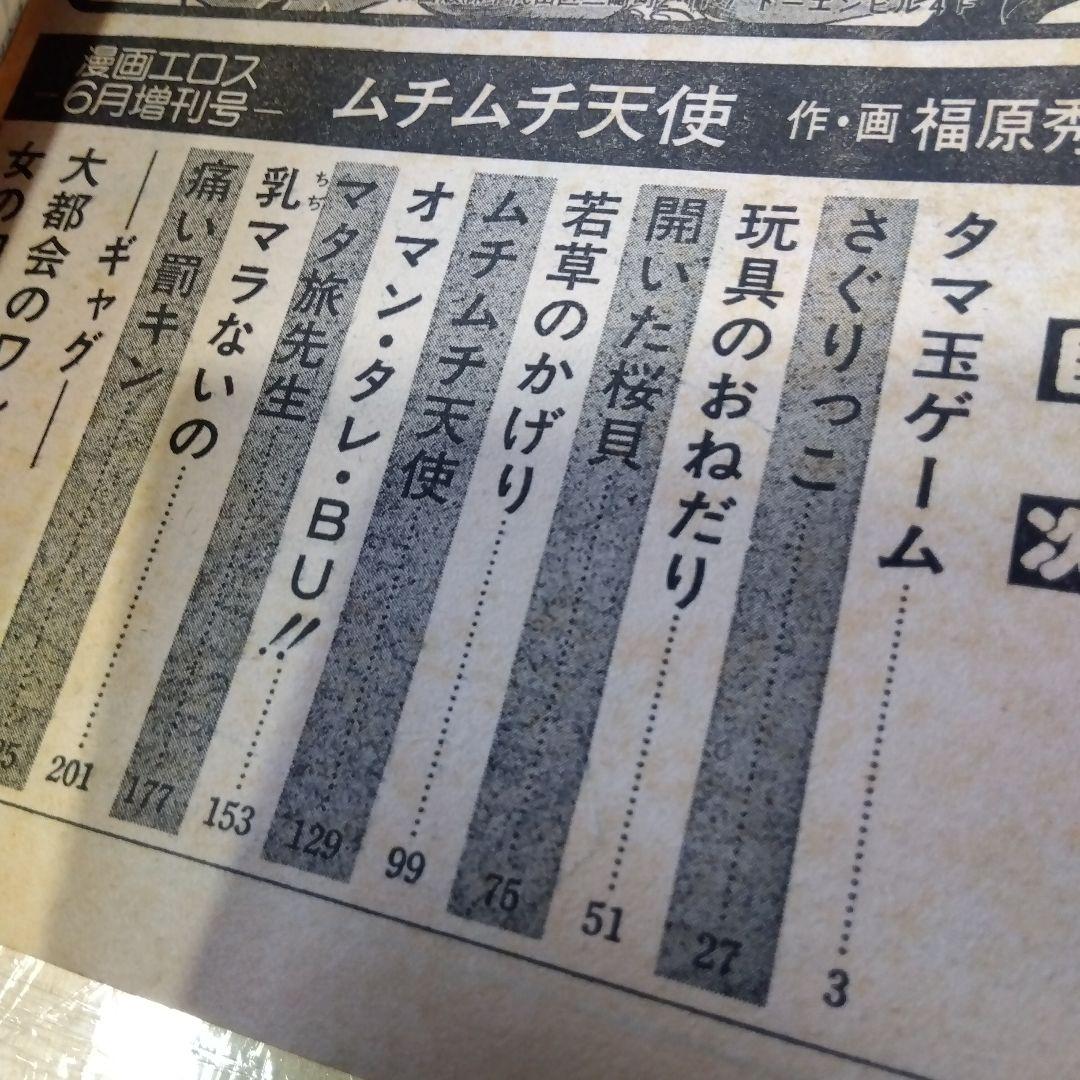 漫画エロス
6月増刊号
ムチムチ天使 作・画 福原秀
タマ玉ゲーム 3
さぐりっこ 27
玩具のおねだり 51
開いた桜貝 75
若草のかげり 99
ムチムチ天使 129
オマン・タレ・BU!! 153
マタ旅先生 177
乳マラないの 201
ちち
痛い罰キン
―ギャグ―
大都会の
女の